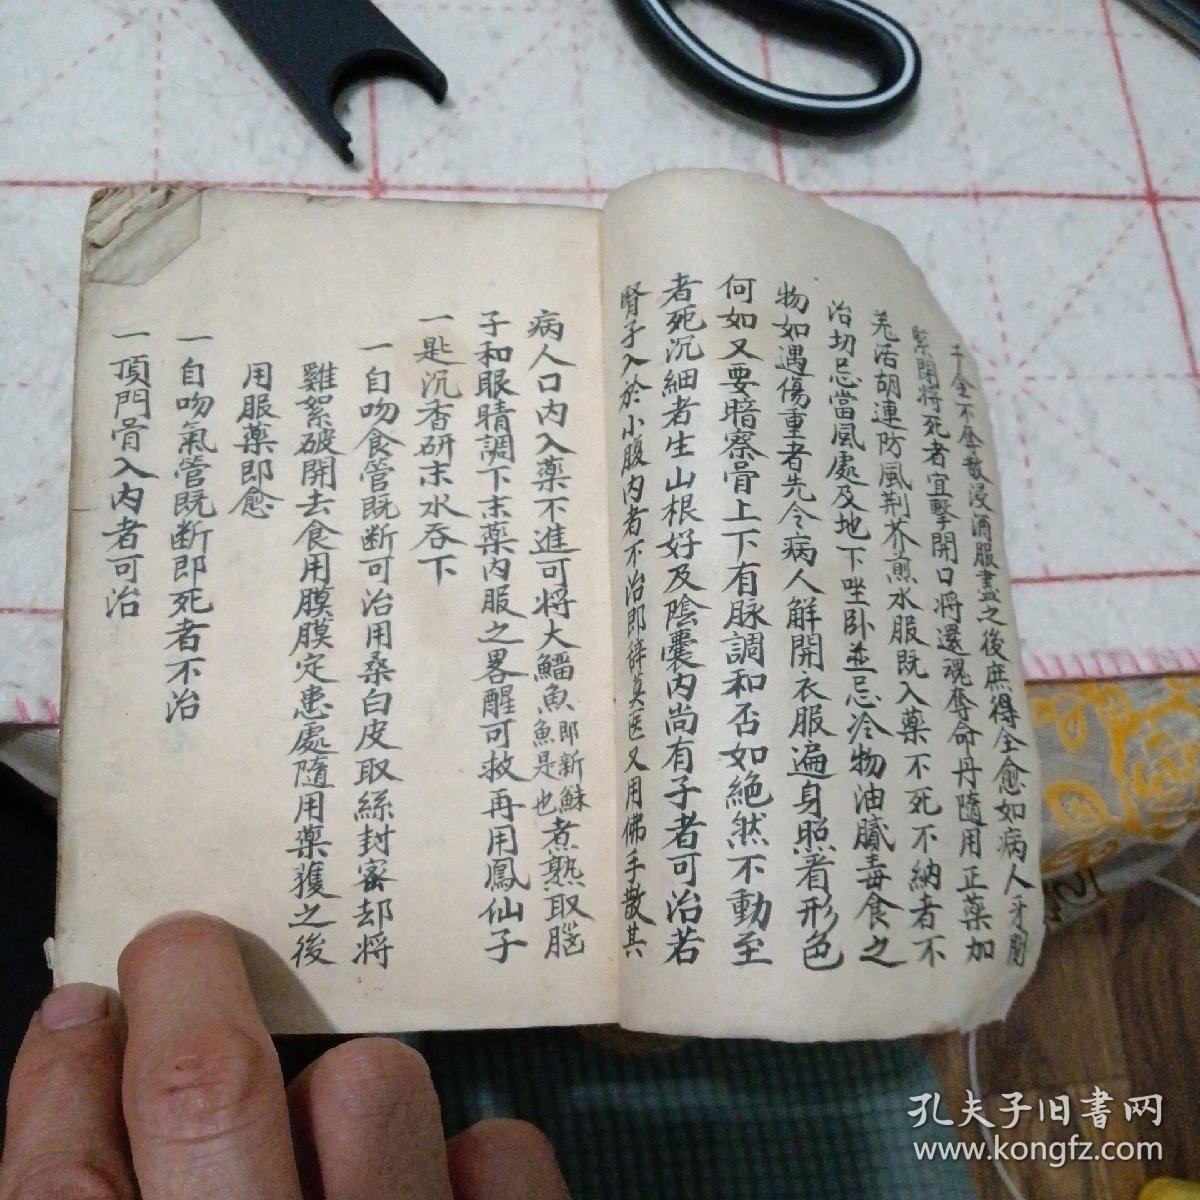 子全不舍散浸酒服盡之後庶得全愈如病人牙関
緊閉將死者宜擊開口將還魂奪命丹隨用正藥加
羌活胡連防風荆芥煎水服既入藥不死不納者不
治切忌當風處及地下坐卧並忌冷物油膩毒食之
物如遇傷重者先令病人解開衣服遍身照看形色
何如又要暗察骨上下有脉調和否如絶然不動至
者死沉細者生山根好及陰囊内尚有子者可治若
腎子入於小腹内者不治即辞莫医又用佛手散其
病人口内入藥不進可將大鰡魚即新鮇魚是也煮熟取腦
子和眼睛調下末藥内服之畧醒可救再用鳳仙子
一匙沉香研末水吞下
一自吻食管既断可治用桑白皮取絲封蜜却將
雞絮破開去食用膜膜定患處隨用藥獲之後
用服藥即愈
一自吻氣管既断即死者不治
一頂門骨入内者可治
孔夫子旧書网
www.kongfz.com